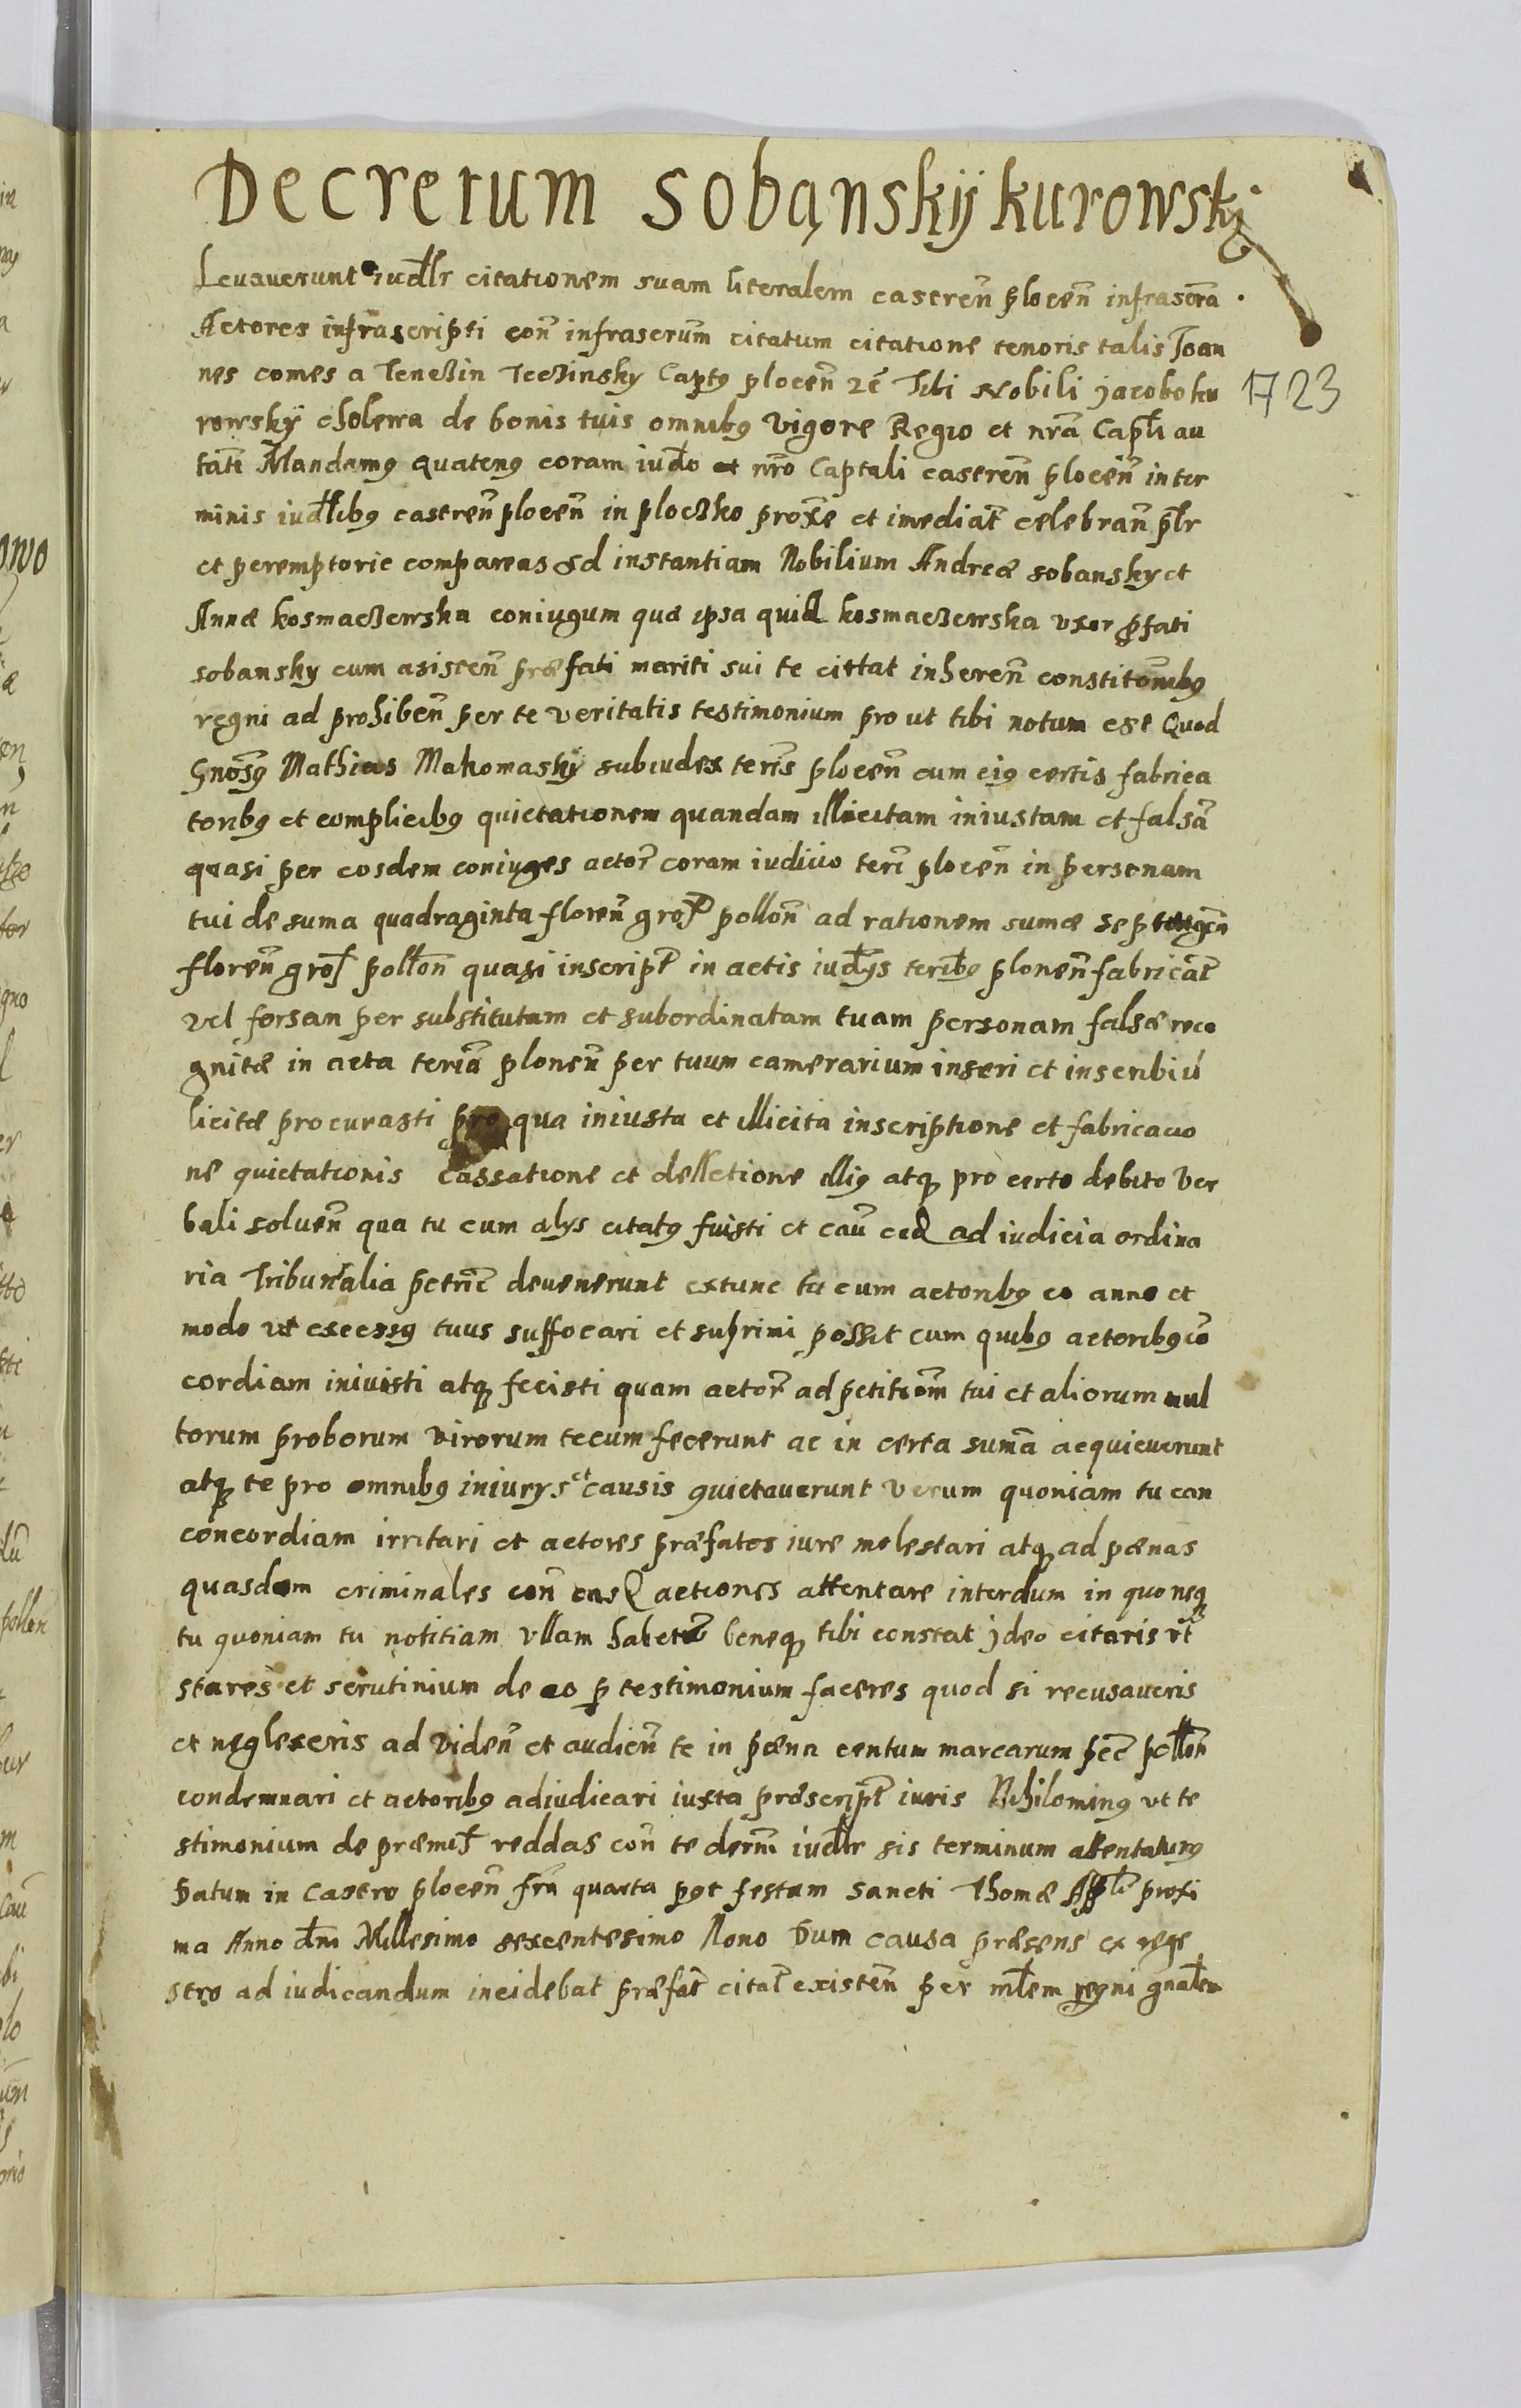 Decretum Sobąnskÿ kurowskj
Levaverunt iudłr citationem suam literalem castreñ płoceñ infrascrã
Actores infrascripti coñ infrascrũm citatum citatione tenoris talis Joan
nes comes a Teneßin Teeßinsky Captꝰ ploceñ zẽ Tibi Nobili jacobo ku
rowskÿ cholewa de bonis tuis omnibꝰ vigore Regio et nrã Capłi au
tatẽ Mandamꝰ quatenꝰ coram iudo et nrõ Captali castreñ ploceñ in ter
minis iudłibꝰ castreñ ploceñ in ploeßko proxẽ et imediat̃ celebrañ płr
et peremptorie compareas ad instantiam Nobilium Andreæ sobansky et
Annæ kosmaeßewska coniugum quæ ipsa quid kosmaeßewska uxor p̃fati
sobansky cum asisteñ præfati mariti sui te cittat inhereñ constitõnibꝰ
regni ad prohibeñ per te veritatis testimonium pro ut tibi notum est Quod
Gnõsꝰ Mathias Makomaskÿ subiudex ter̃is ploceñ cum eiꝰ certis fabrica
toribꝰ et complicibꝰ quietationem quandam illicitam iniustam et falsã
quasi per eosdem coniuges actor̃ coram iudicio ter̃i ploceñ in personam
tui de suma quadraginta floreñ groſ polloñ ad rationem sumæ septingen
floreñ groſ połłoñ quasi inscript̃ in actis iudÿs ter̃ibꝰ ploneñ fabricat̃
vel forsan per substitutam et subordinatam tuam personam falsæ reco
gnitæ in acta ter̃iã ploneñ per tuum camerarium inseri et inscribi ił
licitæ procurasti pro qua iniusta et illicita inscriptione et fabricatio
ne quietationis Cassatione et delletione illiꝰ atqꝫ pro certo debito ver
bali solueñ qua tu cum alÿs citatꝰ fuisti et cau ead ad iudicia ordina
ria Tribunalia petric̃ devenerunt extunc tu cum actoribꝰ eo anno et
modo ut excessꝰ tuus suffocari et suprimi possit cum quibꝰ actoribꝰ cõ
cordiam inivisti atqꝫ fecisti quam actor̃ ad petitiõm tui et aliorum mul
torum proborum virorum tecum fecerunt ac in certa sumã acquieverunt
atqꝫ te pro omnibꝰ iniurÿs et causis quietaverunt verum quoniam tu con
concordiam irritari et actores præfatos iure molestari atqꝫ ad pænas
quasdam criminales coñ easd actiones attentare interdum in quo neqꝫ
tu quoniam tu notitiam ullam habet beneqꝫ tibi constat jdeo citaris ut
stares et scrutinium de eo p̱ testimonium faceres quod si recusaveris
et neglexeris ad videñ et audieñ te in pæna centum marcarum pec̃ połłoñ
condemnari et actoribꝰ adiudicari iuxta præscript̃ iuris Nihilominꝰ ut te
stimonium de præmiſ reddas coñ te der̃m iudłr sis terminum attentaturꝰ
Datum in Castro ploceñ fr̃ia quarta post festum Sancti Thomæ Apłi proxi
ma Anno dñi Millesimo sexcentesimo Nono Dum causa præsens ex rege
stro ad iudicandum incidebat præfat̃ citat̃ existeñ per młem regni gnałem
1723